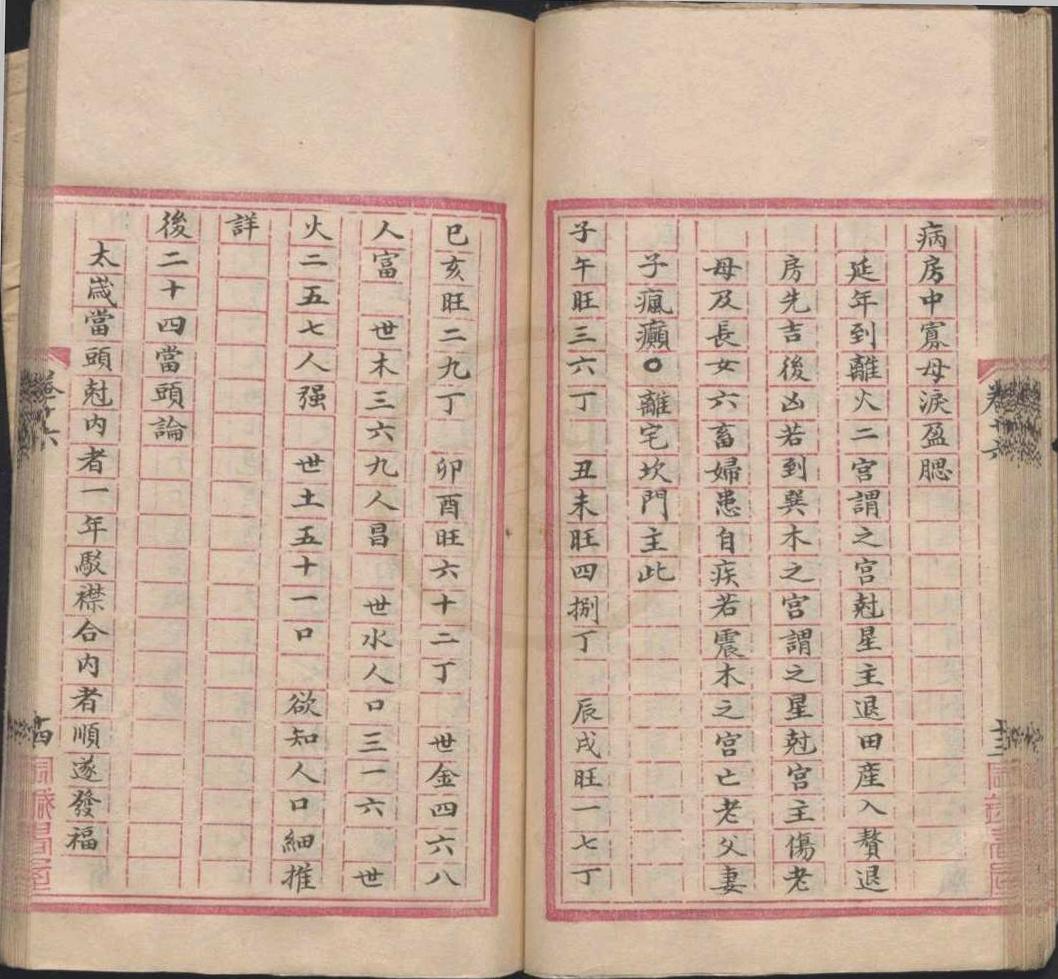 病房中寡母淚盈腮
延年到離火二宮謂之宮尅星主退田産入贅退
房先吉後凶若到巽木之宮謂之星尅宮主傷老
母及長女六畜婦患自疾若震木之宮亡老父妻
子瘋癲○離宅坎門主此
子午旺三六丁 丑未旺四捌丁 辰戌旺一七丁
巳亥旺二九丁 卯酉旺六十二丁 世金四六八
人富 世木三六九人昌 世水人口三一六 世
火二五七人强 世土五十一口 欲知人口細推
詳
後二十四當頭論
太歲當頭尅内者一年駁襟合内者順遂發福
卷十六
十三
卷十六
十四